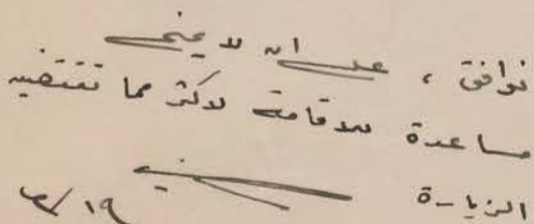 نوافق ، على ان لا يمنح
مساعدة للاقامة لاكثر مما تقتضيه
الزيارة
١٩/